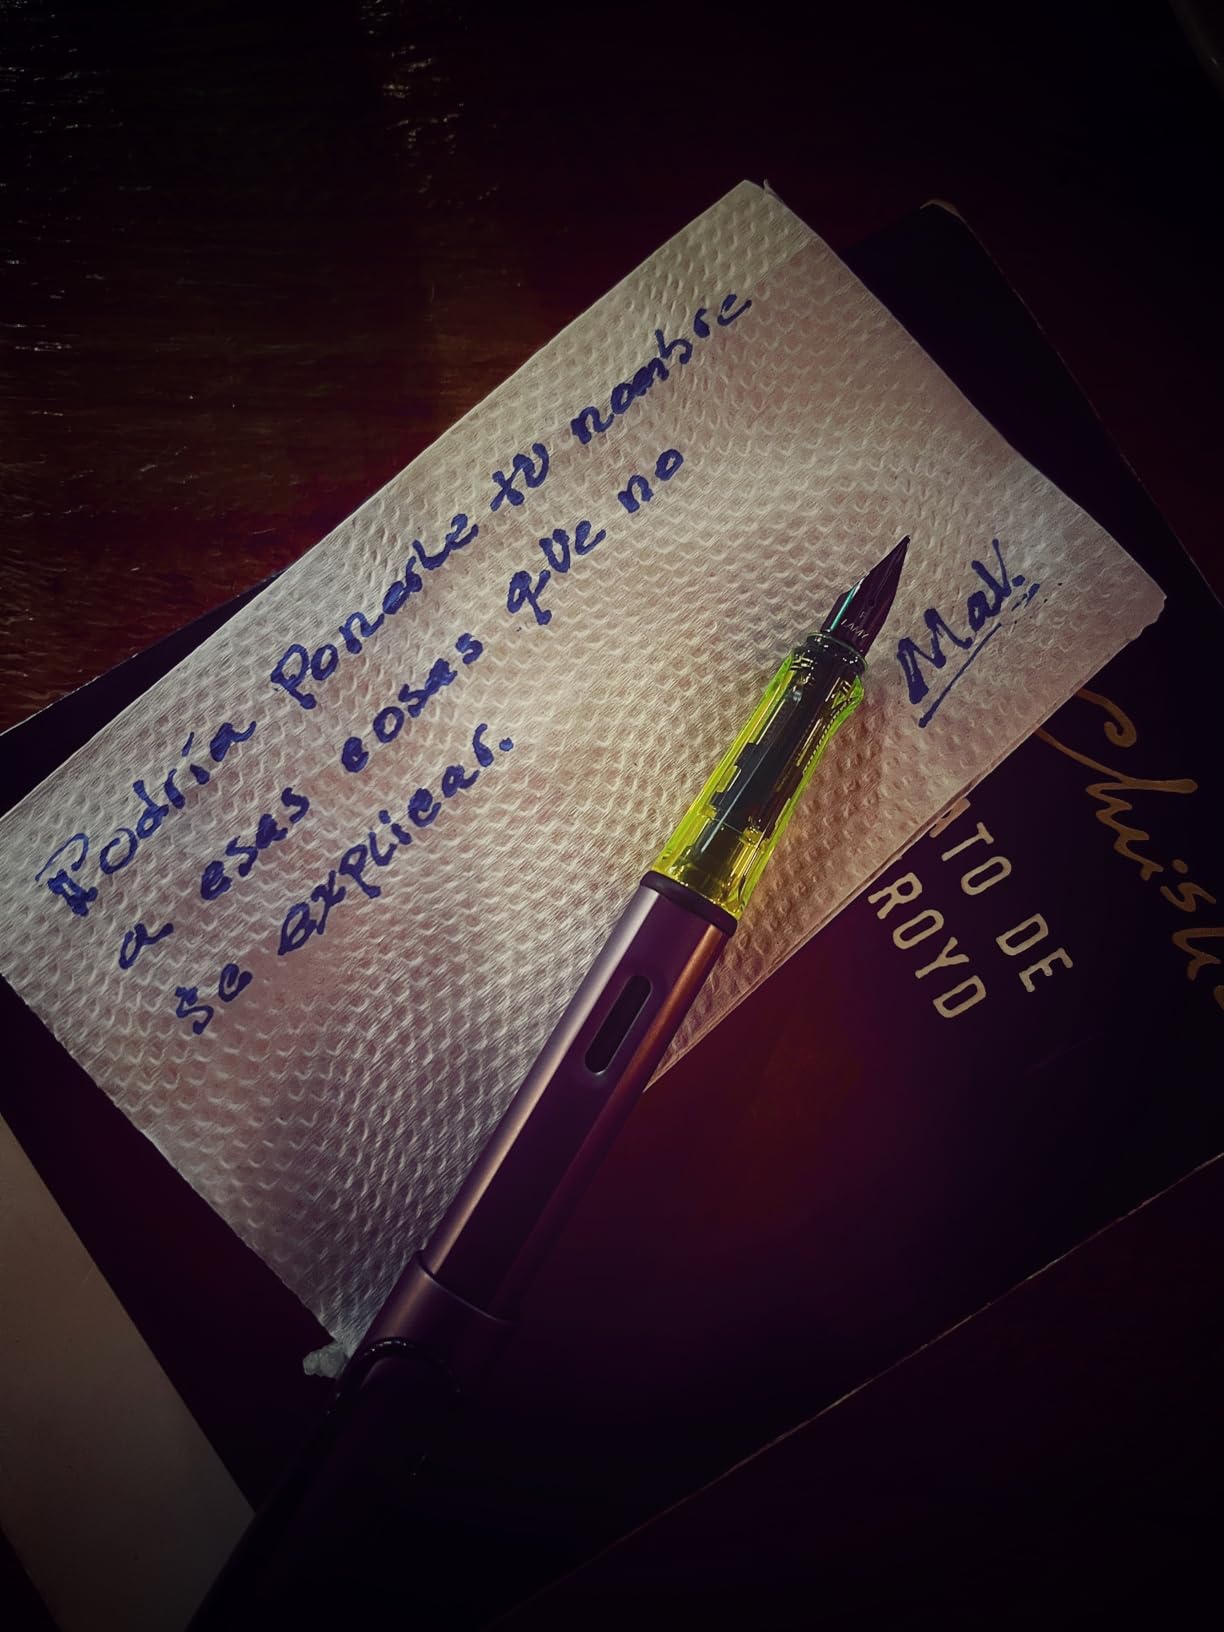 Podría Ponerle tu nombre
a esas cosas que no
se explicar.
Mal.
LAMY
Christi
TO DE
ROYD